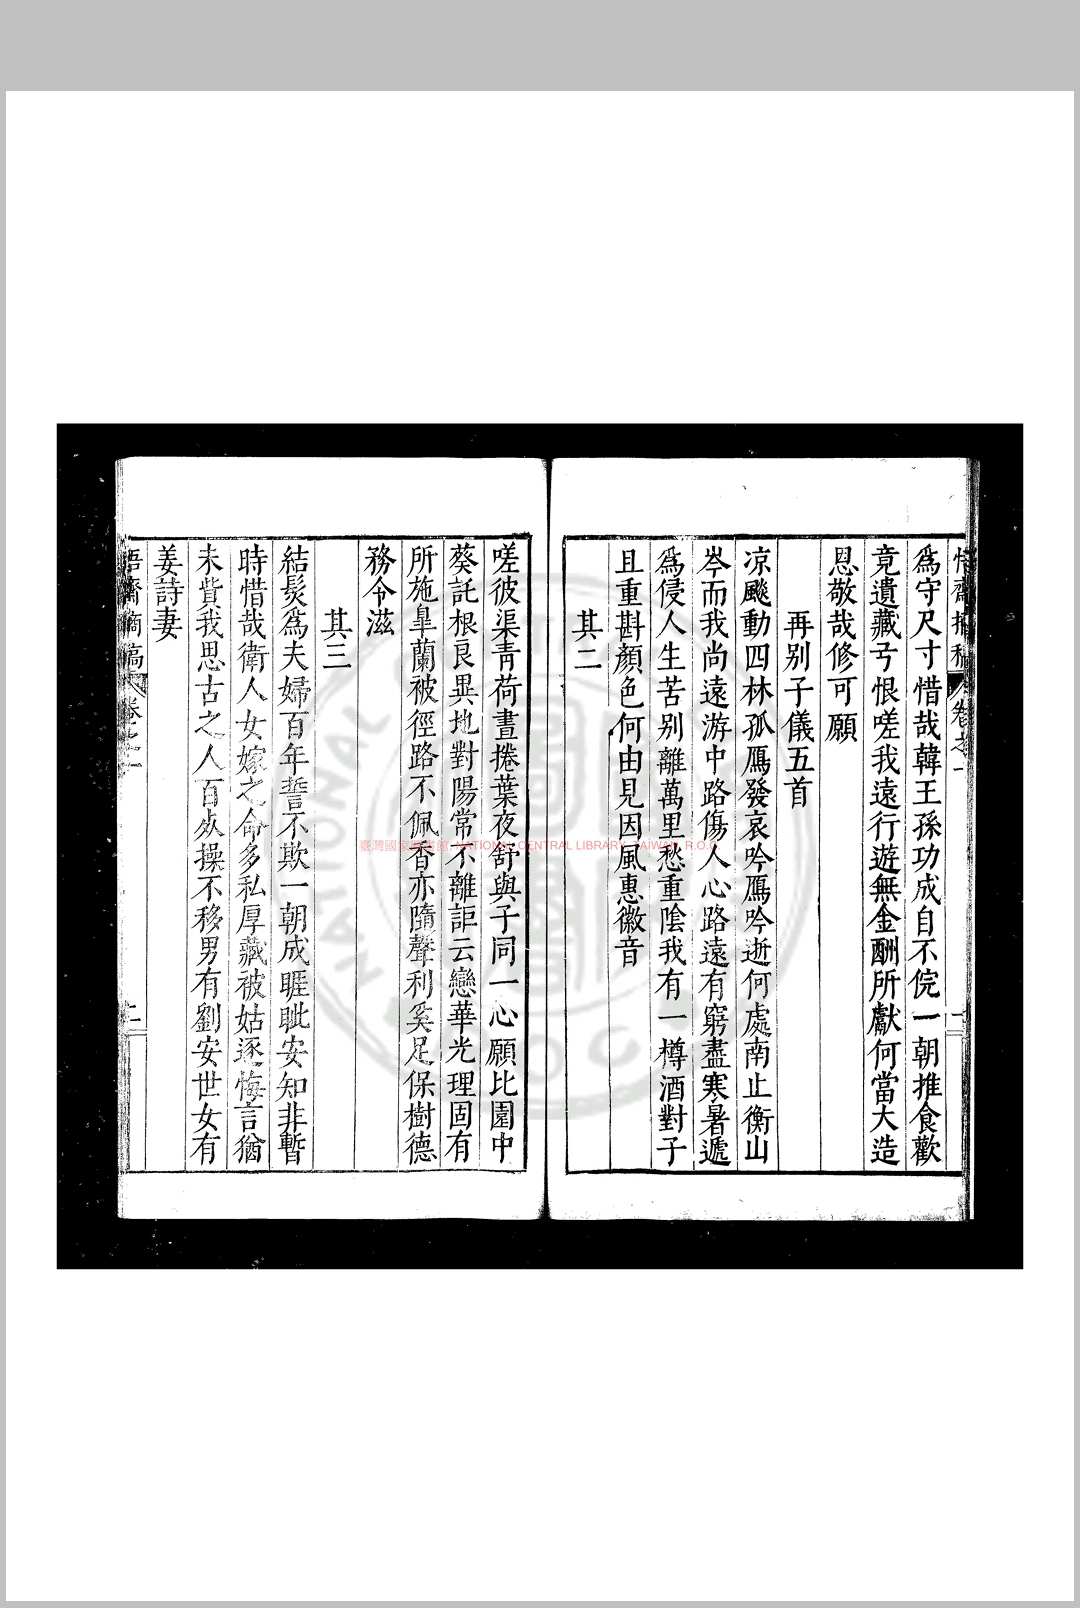 悟齋摘稿 卷之一 一
爲守尺寸惜哉韓王孫功成自不俒一朝推食歡
竟遺藏弓恨嗟我遠行遊無金酬所獻何當大造
恩敬哉修可願
再别子儀五首
凉飈動四林孤鴈發哀吟鴈吟逝何處南止衡山
岑而我尚遠游中路傷人心路遠有窮盡寒暑遞
爲侵人生苦别離萬里愁重陰我有一樽酒對子
且重斟顏色何由見因風惠徽音
其二
嗟彼渠青荷晝捲葉夜舒與子同一心願比園中
葵託根良異地對陽常不離詎云戀華光理固有
所施皐蘭被徑路不佩香亦隨聲利奚足保樹德
務令滋
其三
結髮爲夫婦百年誓不欺一朝成睚眦安知非暫
時惜哉衛人女嫁之命多私厚藏被姑逐悔言猶
未貲我思古之人百䖏操不移男有劉安世女有
姜詩妻
悟齋摘稿 卷之一 二
臺灣國家圖書館 NATIONAL CENTRAL LIBRARY, TAIWAN, R.O.C.